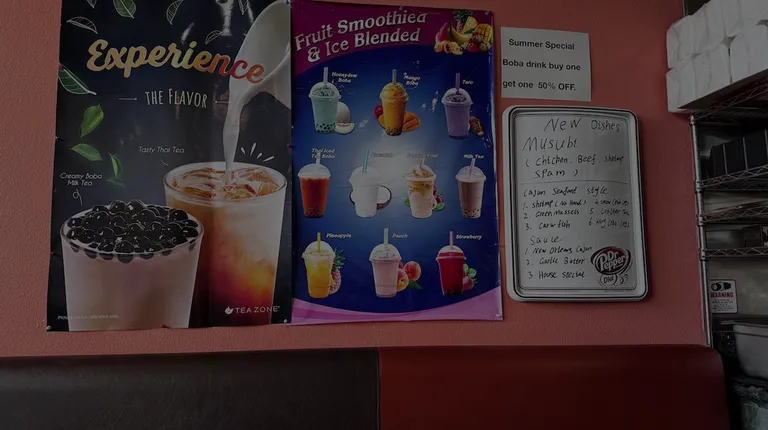 Experience
THE FLAVOR
Tasty Thai Tea
Creamy Boba
Milk Tea
TEAZONE
Fruit Smoothies
& Ice Blended
Honeydew
Boba
Mango
Boba
Taro
Thai Iced
Tea Boba
Milk Tea
Pineapple
Peach
Strawberry
Summer Special
Boba drink buy one
get one 50% OFF.
New Dishes
Musubi
(Chicken, Beef, shrimp
Spam)
Cajun Seafood Style
1. Shrimp (No Head)
2. Green Mussels
3. Crawfish
Sauce
1 New Orleans Cajun
2. Garlic Butter
3 House special
Dr Pepper
WARNING